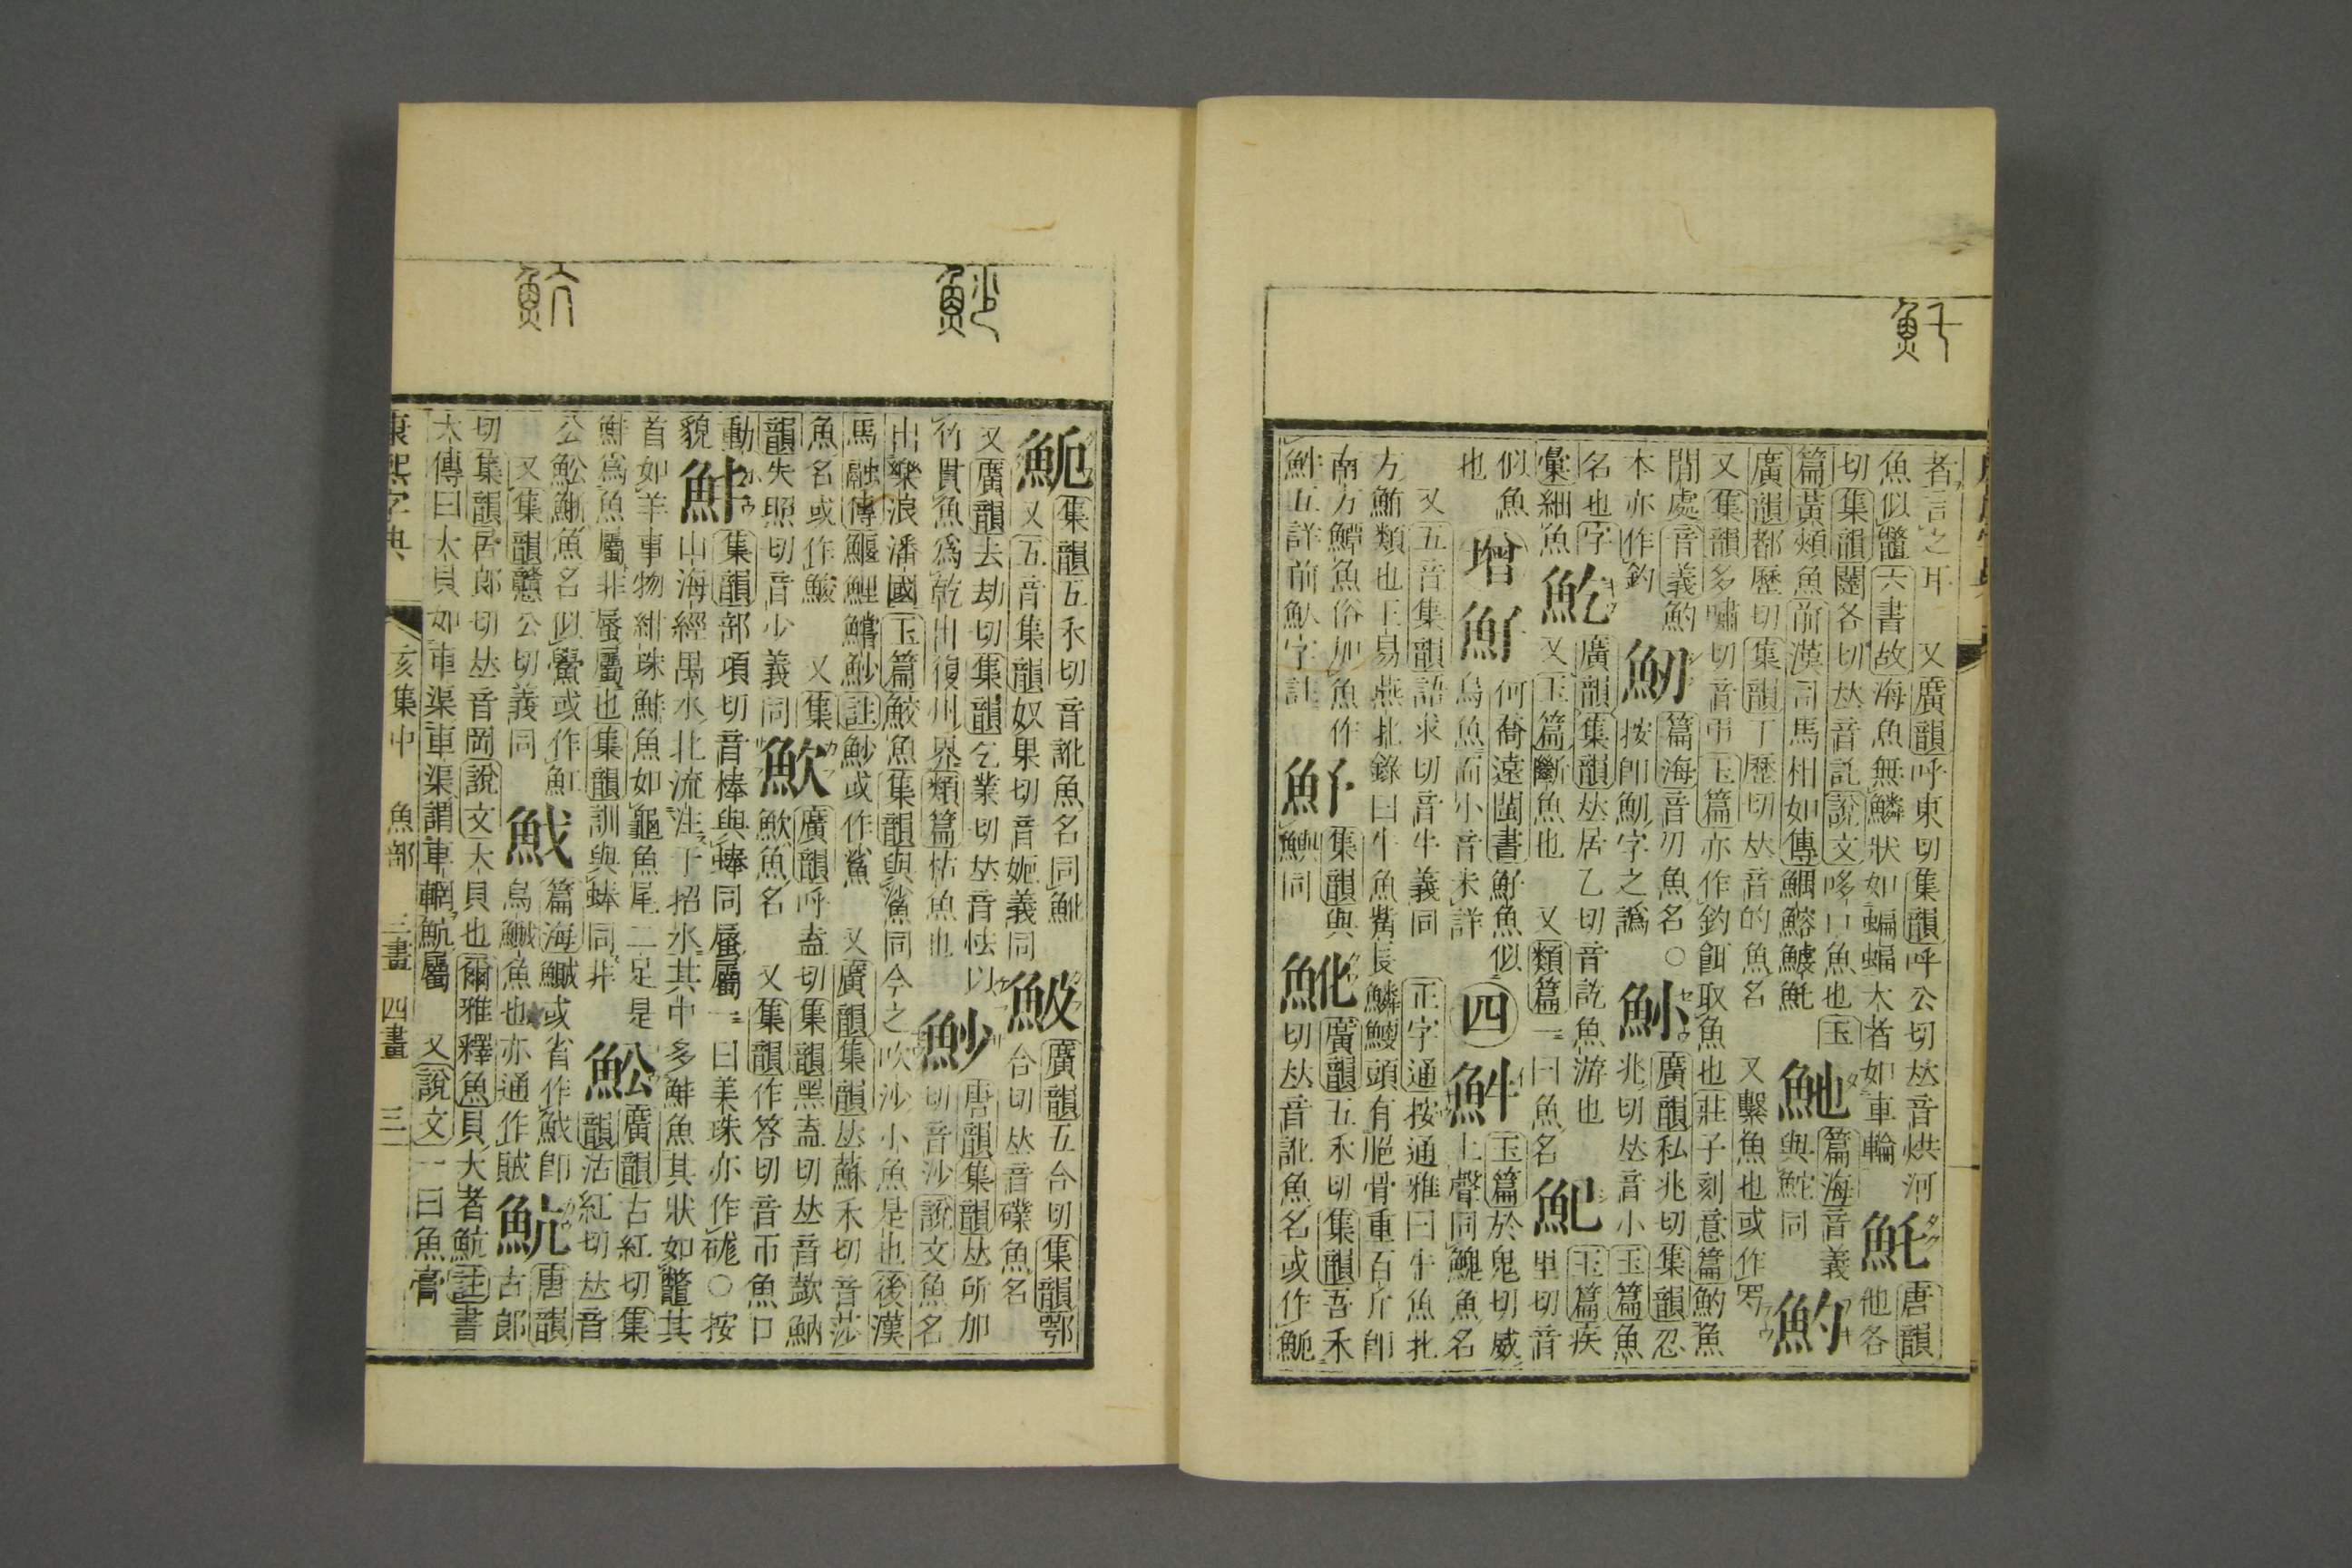 者言之耳 又廣韻呼東切集韻呼公切𠀤音烘河 魠 唐韻
魚似鼈六書故海魚無鱗狀如蝙蝠大者如車輪 他各
切集韻闥各切𠀤音託說文哆口魚也玉 篇海音義
篇黃頰魚前漢司馬相如傳鰅鰫鰬魠 與鮀同 魡
廣韻都歷切集韻丁歷切𠀤音的魚名 又繫魚也或作
又集韻多嘯切音弔玉篇亦作釣餌取魚也莊子刻意篇魡魚
閒處音義魡 篇海音刃魚名○ 廣韻私兆切集韻忍
本亦作釣 按卽魛字之譌 兆切𠀤音小玉篇魚
名也字 廣韻集韻𠀤居乙切音訖魚游也 玉篇疾
彙細魚 又玉篇斷魚也 又類篇一曰魚名 里切音
似魚 增 何喬遠閩書魣魚似 四 玉篇於鬼切威
也 烏魚而小音未詳 上聲同鮠魚名
又五音集韻語求切音牛義同 正字通按通雅曰牛魚北
方鮪類也王易燕北錄曰牛魚觜長鱗鯁頭有脃骨重百斤卽
南方鱏魚俗加魚作 集韻與 魤 廣韻五禾切集韻吾禾
五詳前字註 同 切𠀤音訛魚名或作
集韻五禾切音訛魚名同魤 廣韻五合切集韻鄂
又五音集韻奴果切音妮義同 合切𠀤音礏魚名
又廣韻去劫切集韻乞業切𠀤音怯以 魦 唐韻集韻𠀤所加
竹貫魚爲乾出復州界類篇枯魚也 切音沙說文魚名
出樂浪潘國玉篇鮫魚集韻與鯊同今之吹沙小魚是也後漢
馬融傳鰋鯉鱨魦註魦或作鯊 又廣韻集韻𠀤蘇禾切音莎
魚名或作鮻 又集 廣韻呼盍切集韻黑盍切𠀤音歃魶
韻失照切音少義同 魚名 又集韻作答切音帀魚口
動 集韻部項切音棒與蜯同蜃屬一曰美珠亦作硥○按
貌 山海經禺水北流注于招水其中多鮮魚其狀如鼈其
首如羊事物紺珠鮮魚如龜魚尾二足是 魟 廣韻古紅切集
鮮爲魚屬非蜃屬也集韻訓與蜯同非 韻沽紅切𠀤音
公魟鯏魚名似鱟或作魟 篇海鰔或省作卽
又集韻戇公切義同 烏鰂魚也亦通作賊 魧 唐韻 古郎
切集韻居郎切𠀤音岡說文大貝也爾雅釋魚貝大者魧註書
大傳曰大貝如車渠車渠謂車輞魧屬 又說文一曰魚膏
康熙字典 亥集中 魚部 三畫 四畫 三